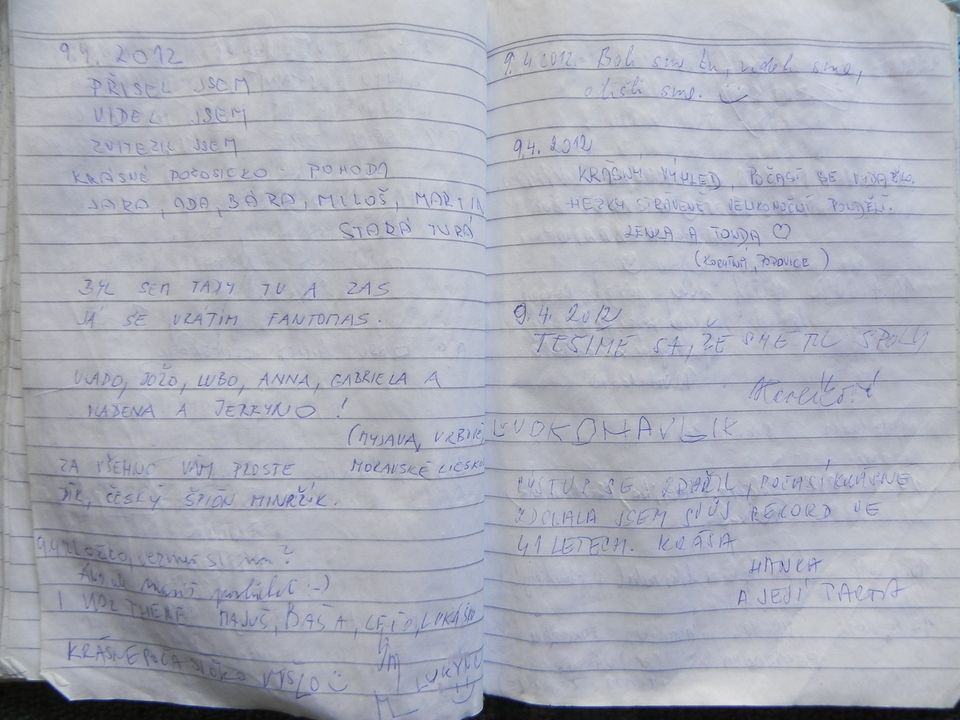 9.4. 2012
PŘIŠEL JSEM
VIDEL JSEM
ZVITEZIL JSEM
KRÁSNÉ POČASICKO - POHODA
JARA, ADA, BÁRA, MILOŠ, MARTIN
STARÁ TURÁ
BYL SEM TADY TU A ZAS
JÁ SE VRÁTIM FANTOMAS.
VLADO, JOŽO, ĽUBO, ANNA, GABRIELA A
MADENA A JERRYNO!
(MYJAVA, VRBOVÉ,
ZA VŠEHNO VÁM PROSTE MORAVSKÉ LIESKOVÉ
DÍK, ČESKÝ ŠPIÓN MINAŘÍK.
9.4
si ma?
:-)
I WOZ THERE MAJUŠ, BAŠA,
KRÁSNE POČASIČKO VYŠLO
LUKYNO
9.4.2012. Boli sme tu, videli sme,
sme.
9.4. 2012
KRÁSNÝ VÝHLED, POČASÍ SE VYDAŘILO.
HEZKY STRÁVENÉ VELIKONOČNÍ PONDĚLÍ.
LENKA A TONDA ♡
(POPOVICE)
9.4. 2012
TEŠÍME SA, ŽE SME TU SPOLU
VÝSTUP SE ZDAŘIL, POČASÍ KRÁSNÉ
ZDOLALA JSEM SVŮJ REKORD VE
41 LETECH. KRÁSA
HANKA
A JEJÍ PARTA